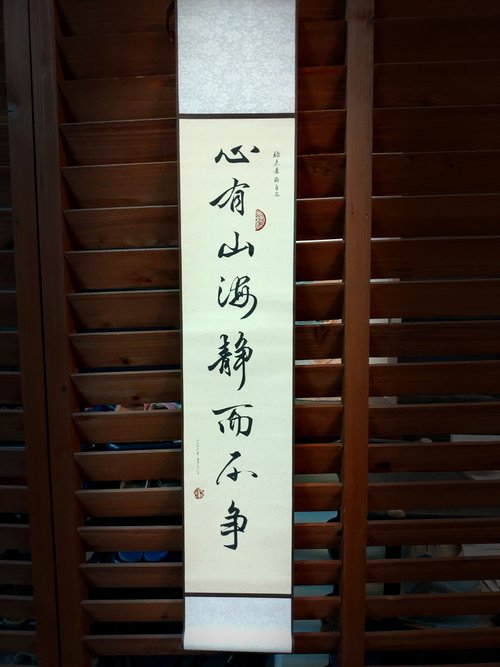 心有山海静而不争